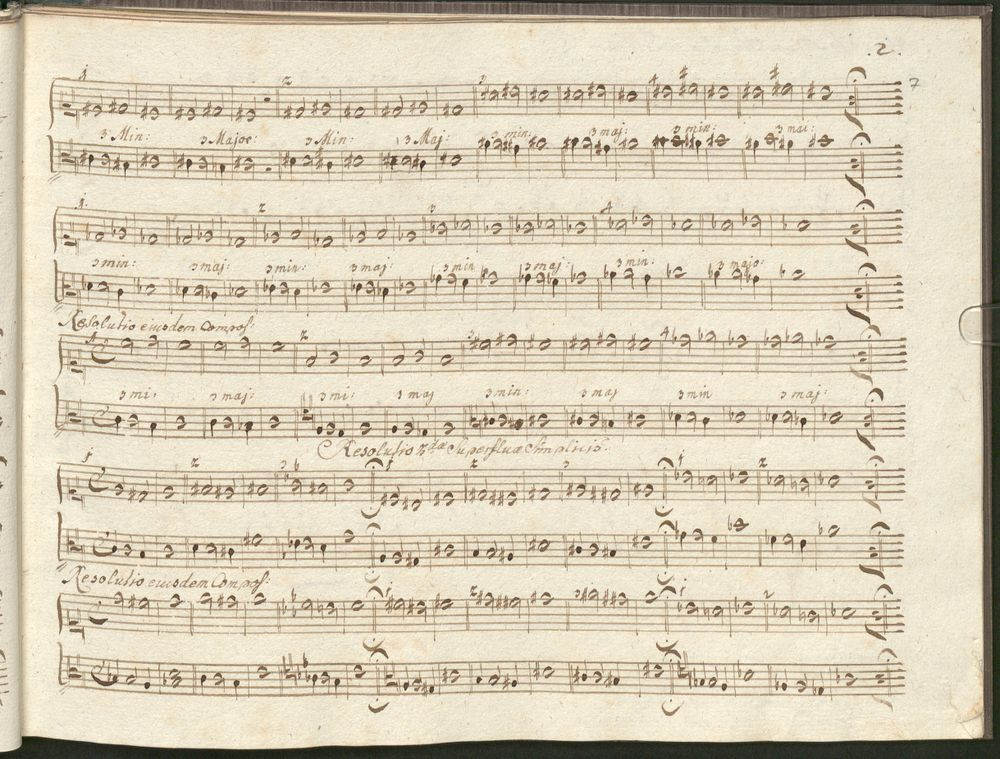 2.
7
1 2 3 4
3 Min: 3 Major 3 Min: 3 Maj: 3 min: 3 maj: 3 min: 3 mai:
1. 2 3 4
3 min: 3 maj: 3 min: 3 maj: 3 min 3 maj 3 min: 3 majo:
Resolutio eiusdem Compos:
2 3 4
3 mi: 3 maj: 3 mi: 3 maj 3 min: 3 maj 3 min 3 maj:
Resolutio 2dae Superfluae Simplicis.
1 2 3 1 2 3 1 2
Resolutio eiusdem Compos:
1 2 3 1 2